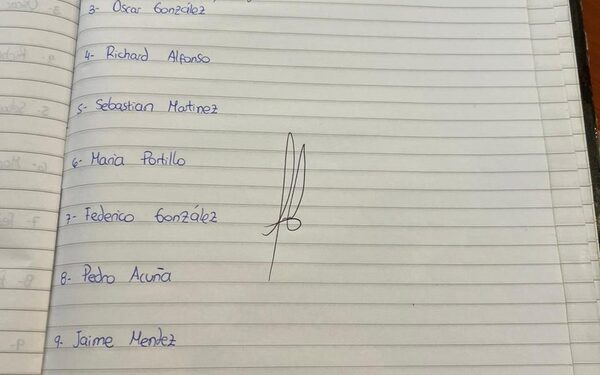 3- Oscar González
4- Richard Alfonso
5- Sebastian Martinez
6- Maria Portillo
7- Federico González
8- Pedro Acuña
9- Jaime Mendez